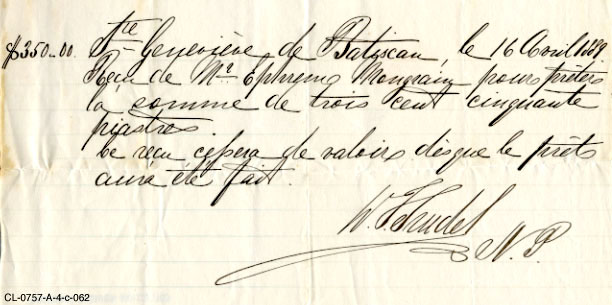 $350-00. Ste Geneviève de Batiscan, le 16 Avril 1889
Reçu de Mr. Ephrem Mongrain pour prêter
la somme de trois cent cinquante
piastres.
Ce reçu cessera de valoir dèsque le prêt
aura été fait.
W. F. Trudel
N. P.
CL-0757-A-4-c-062